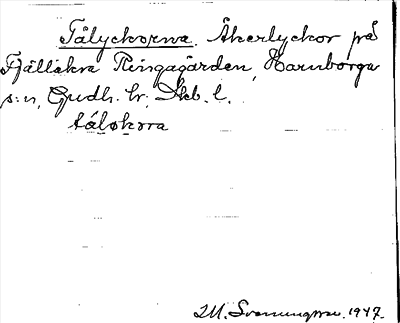 Tålyckorna. Åkerlyckor på
Fjällåkra Ringagården, Hornborga
s:n, Gudh. hr, Skb. l.
táløkɷra
M. Svenungsson. 1947.